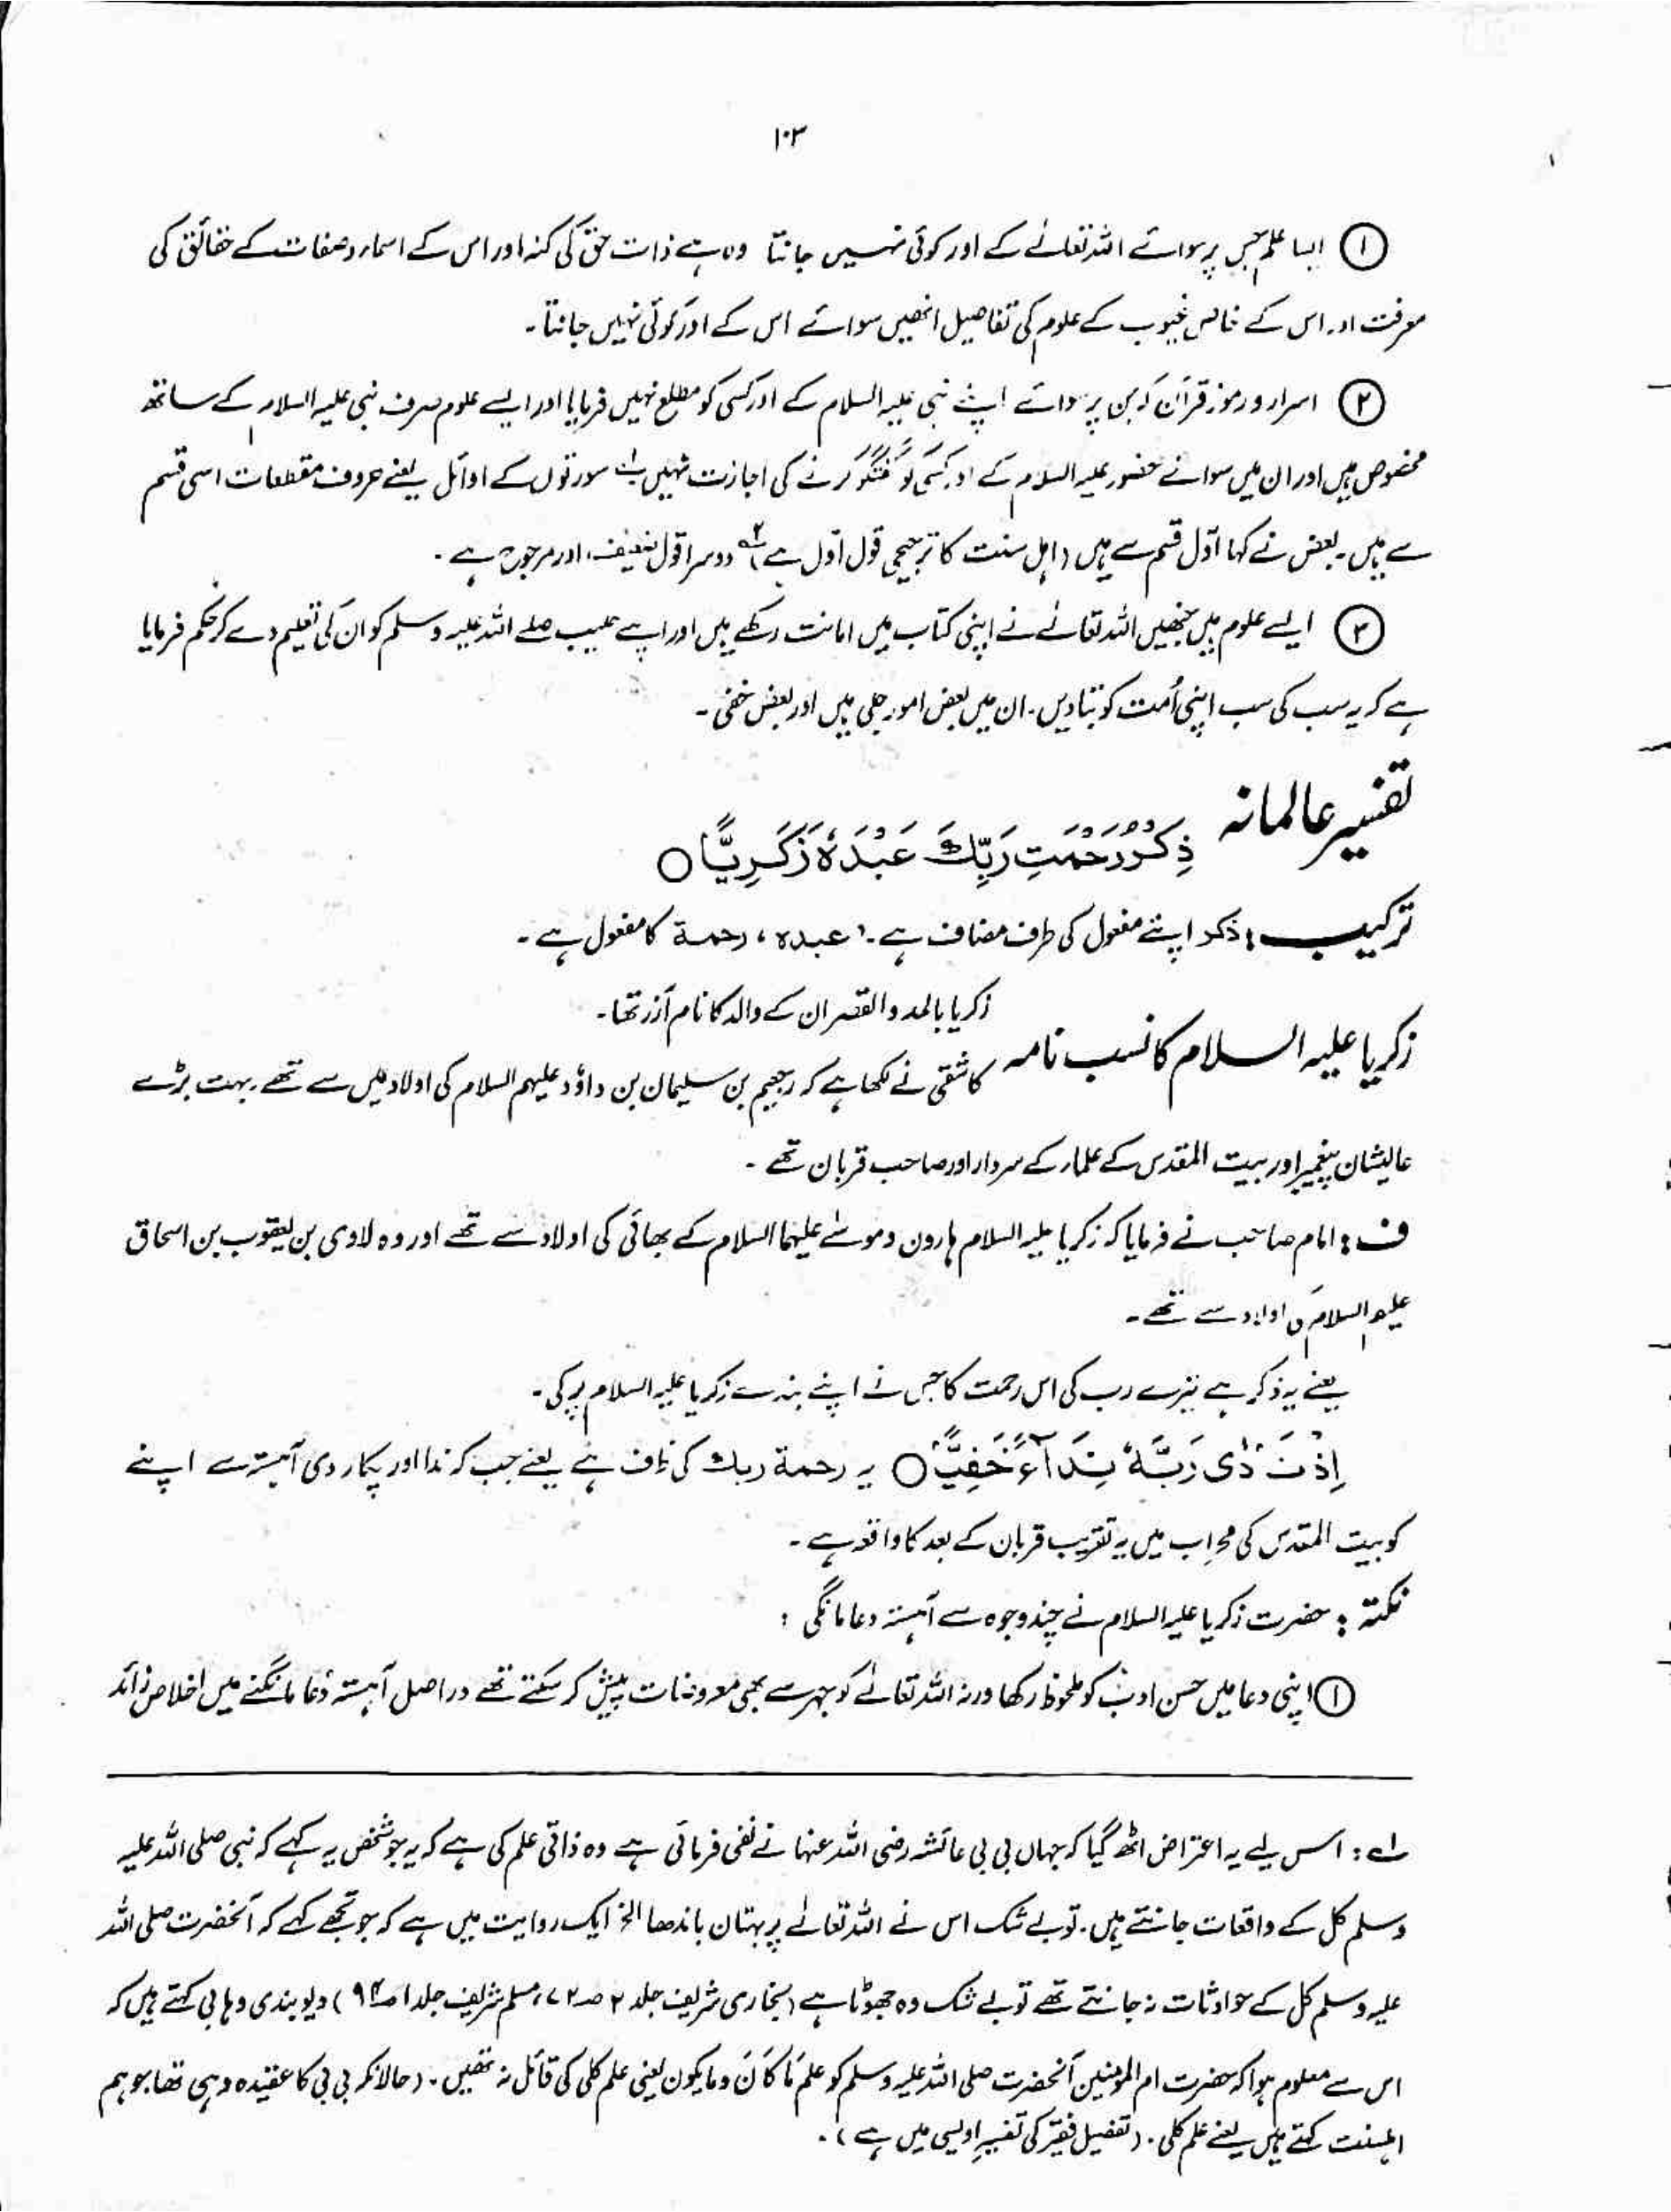 ۱۰۳
① ایسا علم جس پر سوائے اللہ تعالےٰ کے اور کوئی نہیں جانتا وہ ہے ذات حق کی کنہ اور اس کے اسماء و صفات کے حقائق کی
معرفت اور اس کے خاص غیوب کے علوم کی تفاصیل انھیں سوائے اس کے اور کوئی نہیں جانتا۔
② اسرار و رموز قرآن کہ جن پر سوائے اپنے نبی علیہ السلام کے اور کسی کو مطلع نہیں فرمایا اور ایسے علوم صرف نبی علیہ السلام کے ساتھ
مخصوص ہیں اور ان میں سوائے حضور علیہ السلام کے اور کسی کو گفتگو کرنے کی اجازت نہیں سورتوں کے اوائل یعنے حروف مقطعات اسی قسم
سے ہیں۔ بعض نے کہا اوّل قسم سے ہیں (اہل سنت کا ترجیحی قول اوّل ہے) دوسرا قول ضعیف، اور مرجوح ہے۔
③ ایسے علوم ہیں جنھیں اللہ تعالےٰ نے اپنی کتاب میں امانت رکھے ہیں اور اپنے حبیب صلے اللہ علیہ وسلم کو ان کی تعلیم دے کر حکم فرمایا
ہے کہ یہ سب کی سب اپنی اُمت کو بتا دیں۔ ان میں بعض امور جلی ہیں اور بعض خفی۔
تفسیر عالمانہ ذِكْرُ رَحْمَتِ رَبِّكَ عَبْدَهٗ زَكَرِیَّا ○
ترکیب : ذکر اپنے مفعول کی طرف مضاف ہے۔ عبدہ ، رحمۃ کا مفعول ہے۔
زکریا بالمد والقصر ان کے والد کا نام آزر تھا۔
زکریا علیہ السلام کا نسب نامہ کاشفی نے لکھا ہے کہ رجیم بن سلیمان بن داؤد علیہم السلام کی اولاد میں سے تھے۔ بہت بڑے
عالیشان پیغمبر اور بیت المقدس کے علماء کے سردار اور صاحب قربان تھے۔
ف : امام صاحب نے فرمایا کہ زکریا علیہ السلام ہارون و موسٰے علیہما السلام کے بھائی کی اولاد سے تھے اور وہ لاوی بن یعقوب بن اسحاق
علیہم السلام کی اولاد سے تھے۔
یعنے یہ ذکر ہے تیرے رب کی اس رحمت کا جس نے اپنے بندے زکریا علیہ السلام پر کی۔
اِذْ نَادٰی رَبَّهٗ نِدَآءً خَفِیًّا ○ یہ رحمۃ ربك کی ظرف ہے یعنے جب کہ ندا اور پکار دی آہستہ سے اپنے
کو بیت المقدس کی محراب میں یہ تقریب قربان کے بعد کا واقعہ ہے۔
نکتہ : حضرت زکریا علیہ السلام نے چند وجوہ سے آہستہ دعا مانگی :
① اپنی دعا میں حسن ادب کو ملحوظ رکھا ورنہ اللہ تعالےٰ کو جہر سے بھی معروضات پیش کر سکتے تھے دراصل آہستہ دُعا مانگنے میں اخلاص زائد
لہ : اس لیے یہ اعتراض اٹھ گیا کہ جہاں بی بی عائشہ رضی اللہ عنہا نے نفی فرمائی ہے وہ ذاتی علم کی ہے کہ یہ جو شخص یہ کہے کہ نبی صلی اللہ علیہ
وسلم کل کے واقعات جانتے ہیں۔ تو بے شک اس نے اللہ تعالےٰ پر بہتان باندھا الخ ایک روایت میں ہے کہ جو تجھے کہے کہ آنحضرت صلی اللہ
علیہ وسلم کل کے حوادثات نہ جانتے تھے تو بے شک وہ جھوٹا ہے (بخاری شریف جلد ۲ صـ ۷۲، مسلم شریف جلد ۱ صـ ۹۴) دیوبندی وہابی کہتے ہیں کہ
اس سے معلوم ہوا کہ حضرت ام المومنین آنحضرت صلی اللہ علیہ وسلم کو علم مَا کَانَ وما یکون یعنی علم کلی کی قائل نہ تھیں۔ (حالانکہ بی بی کا عقیدہ وہی تھا جو ہم
اہلسنت کہتے ہیں یعنے علم کلی۔ (تفصیل فقیر کی تفسیر اویسی میں ہے)۔